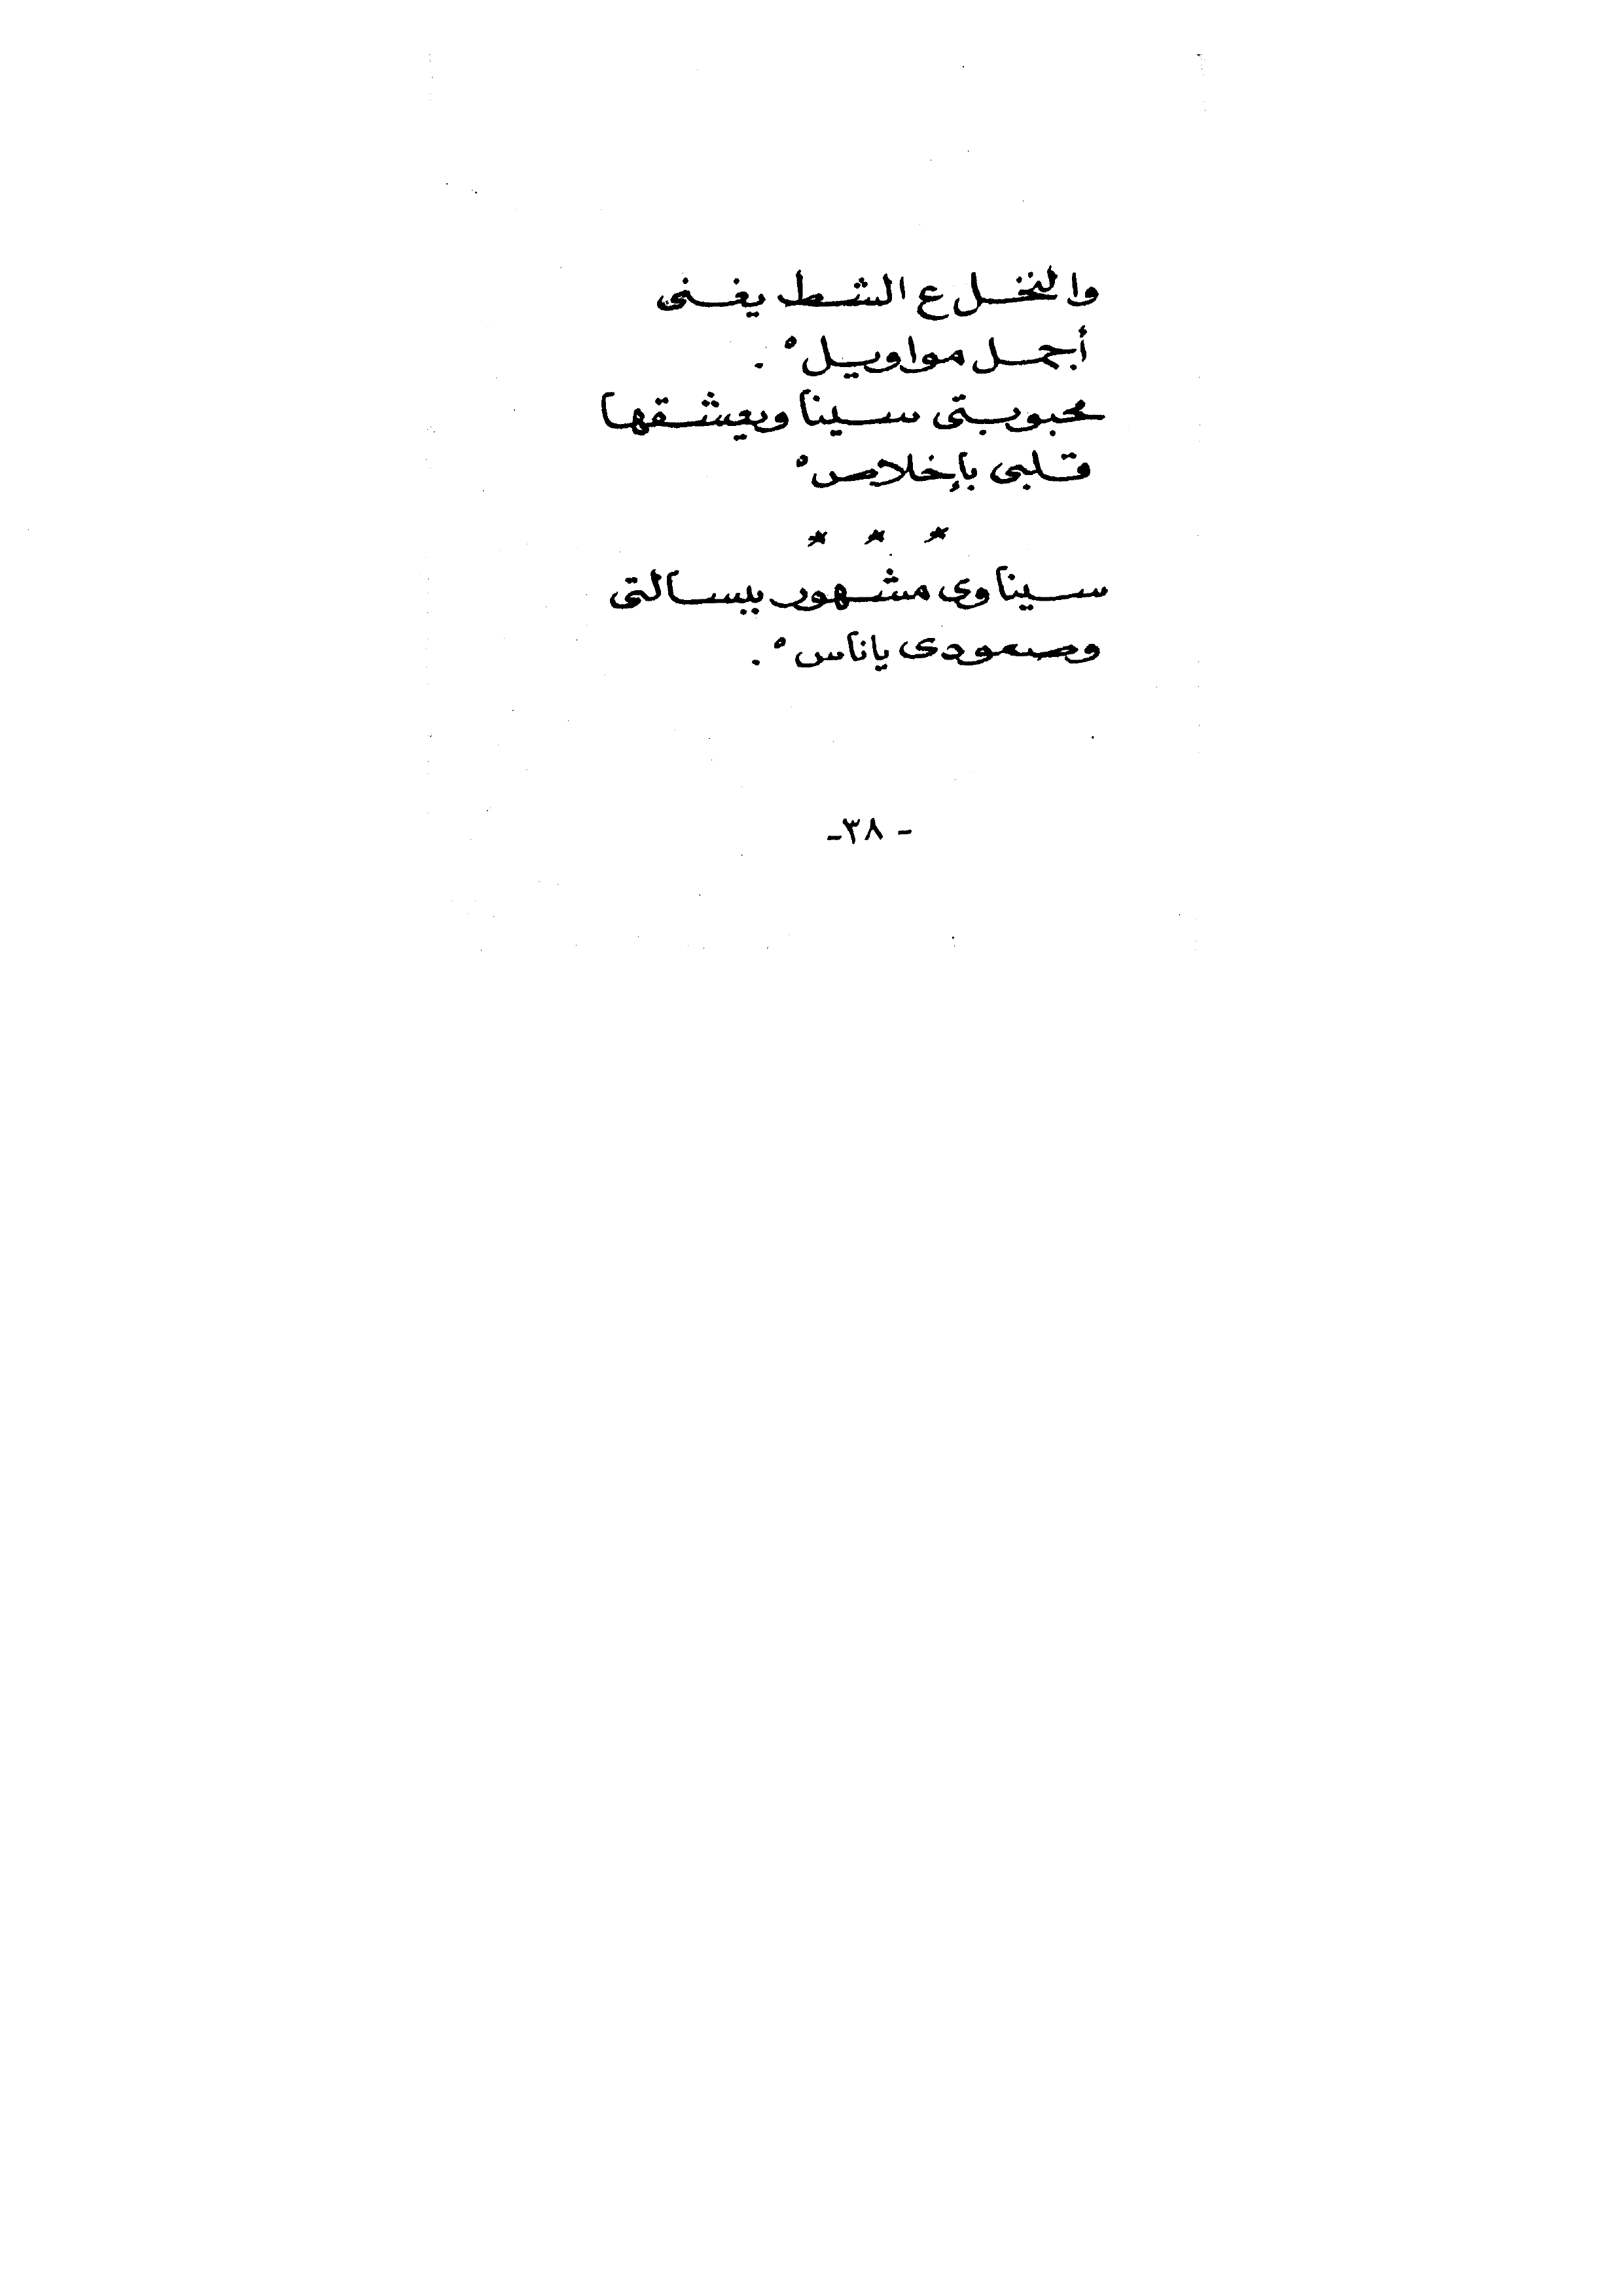 والنخل ع الشط يغنى
أجمل مواويلْ .
محبوبتى سينا وبعشقها
قلبى بإخلاصْ
* * *
سيناوى مشهور ببسالتى
وصمودى ياناسْ .
- ٣٨-